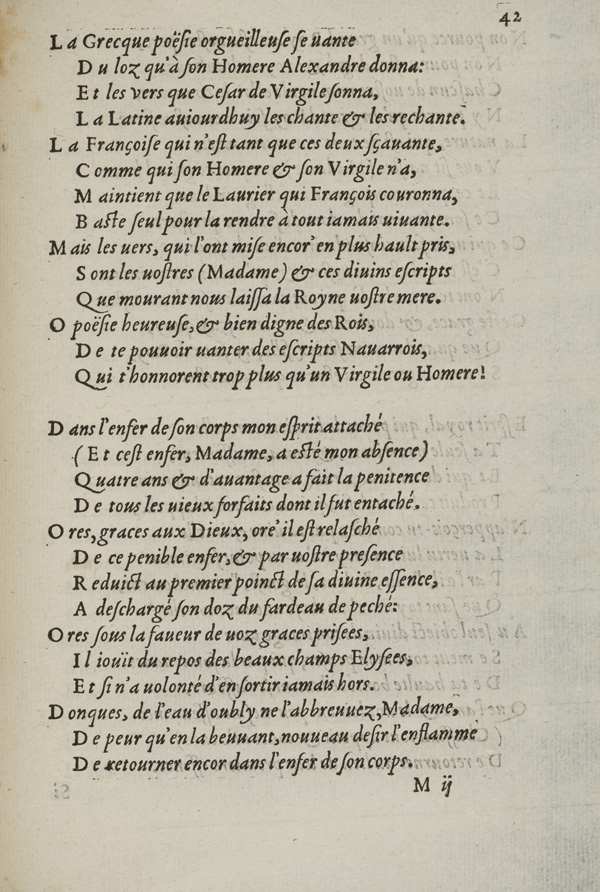 42
La Grecque poësie orgueilleuse se uante
Du loz qu'à son Homere Alexandre donna:
Et les vers que Cesar de Virgile sonna,
La Latine auiourdhuy les chante & les rechante.
La Françoise qui n'est tant que ces deux sçauante,
Comme qui son Homere & son Virgile n'a,
Maintient que le Laurier qui François couronna,
Baste seul pour la rendre à tout iamais uiuante.
Mais les uers, qui l'ont mise encor' en plus hault pris,
Sont les uostres (Madame) & ces diuins escripts
Que mourant nous laissa la Royne uostre mere.
O poësie heureuse, & bien digne des Rois,
De te pouuoir uanter des escripts Nauarrois,
Qui t'honnorent trop plus qu'un Virgile ou Homere!
Dans l'enfer de son corps mon esprit attaché
(Et cest enfer, Madame, a esté mon absence)
Quatre ans & d'auantage a fait la penitence
De tous les uieux forfaits dont il fut entaché.
Ores, graces aux Dieux, or é il est relasché
De ce penible enfer, & par uostre presence
Reduict au premier poinct de sa diuine essence,
A deschargé son doz du fardeau de peché:
Ores sous la faueur de uoz graces prisees,
Il iouït du repos des beaux champs Elysees,
Et si n'a uolonté d'en sortir iamais hors.
Donques, de l'eau d'oubly ne l'abbreuuez, Madame,
De peur qu'en la beuuant, nouueau desir l'enflamme
De retourner encor dans l'enfer de son corps.
M ij